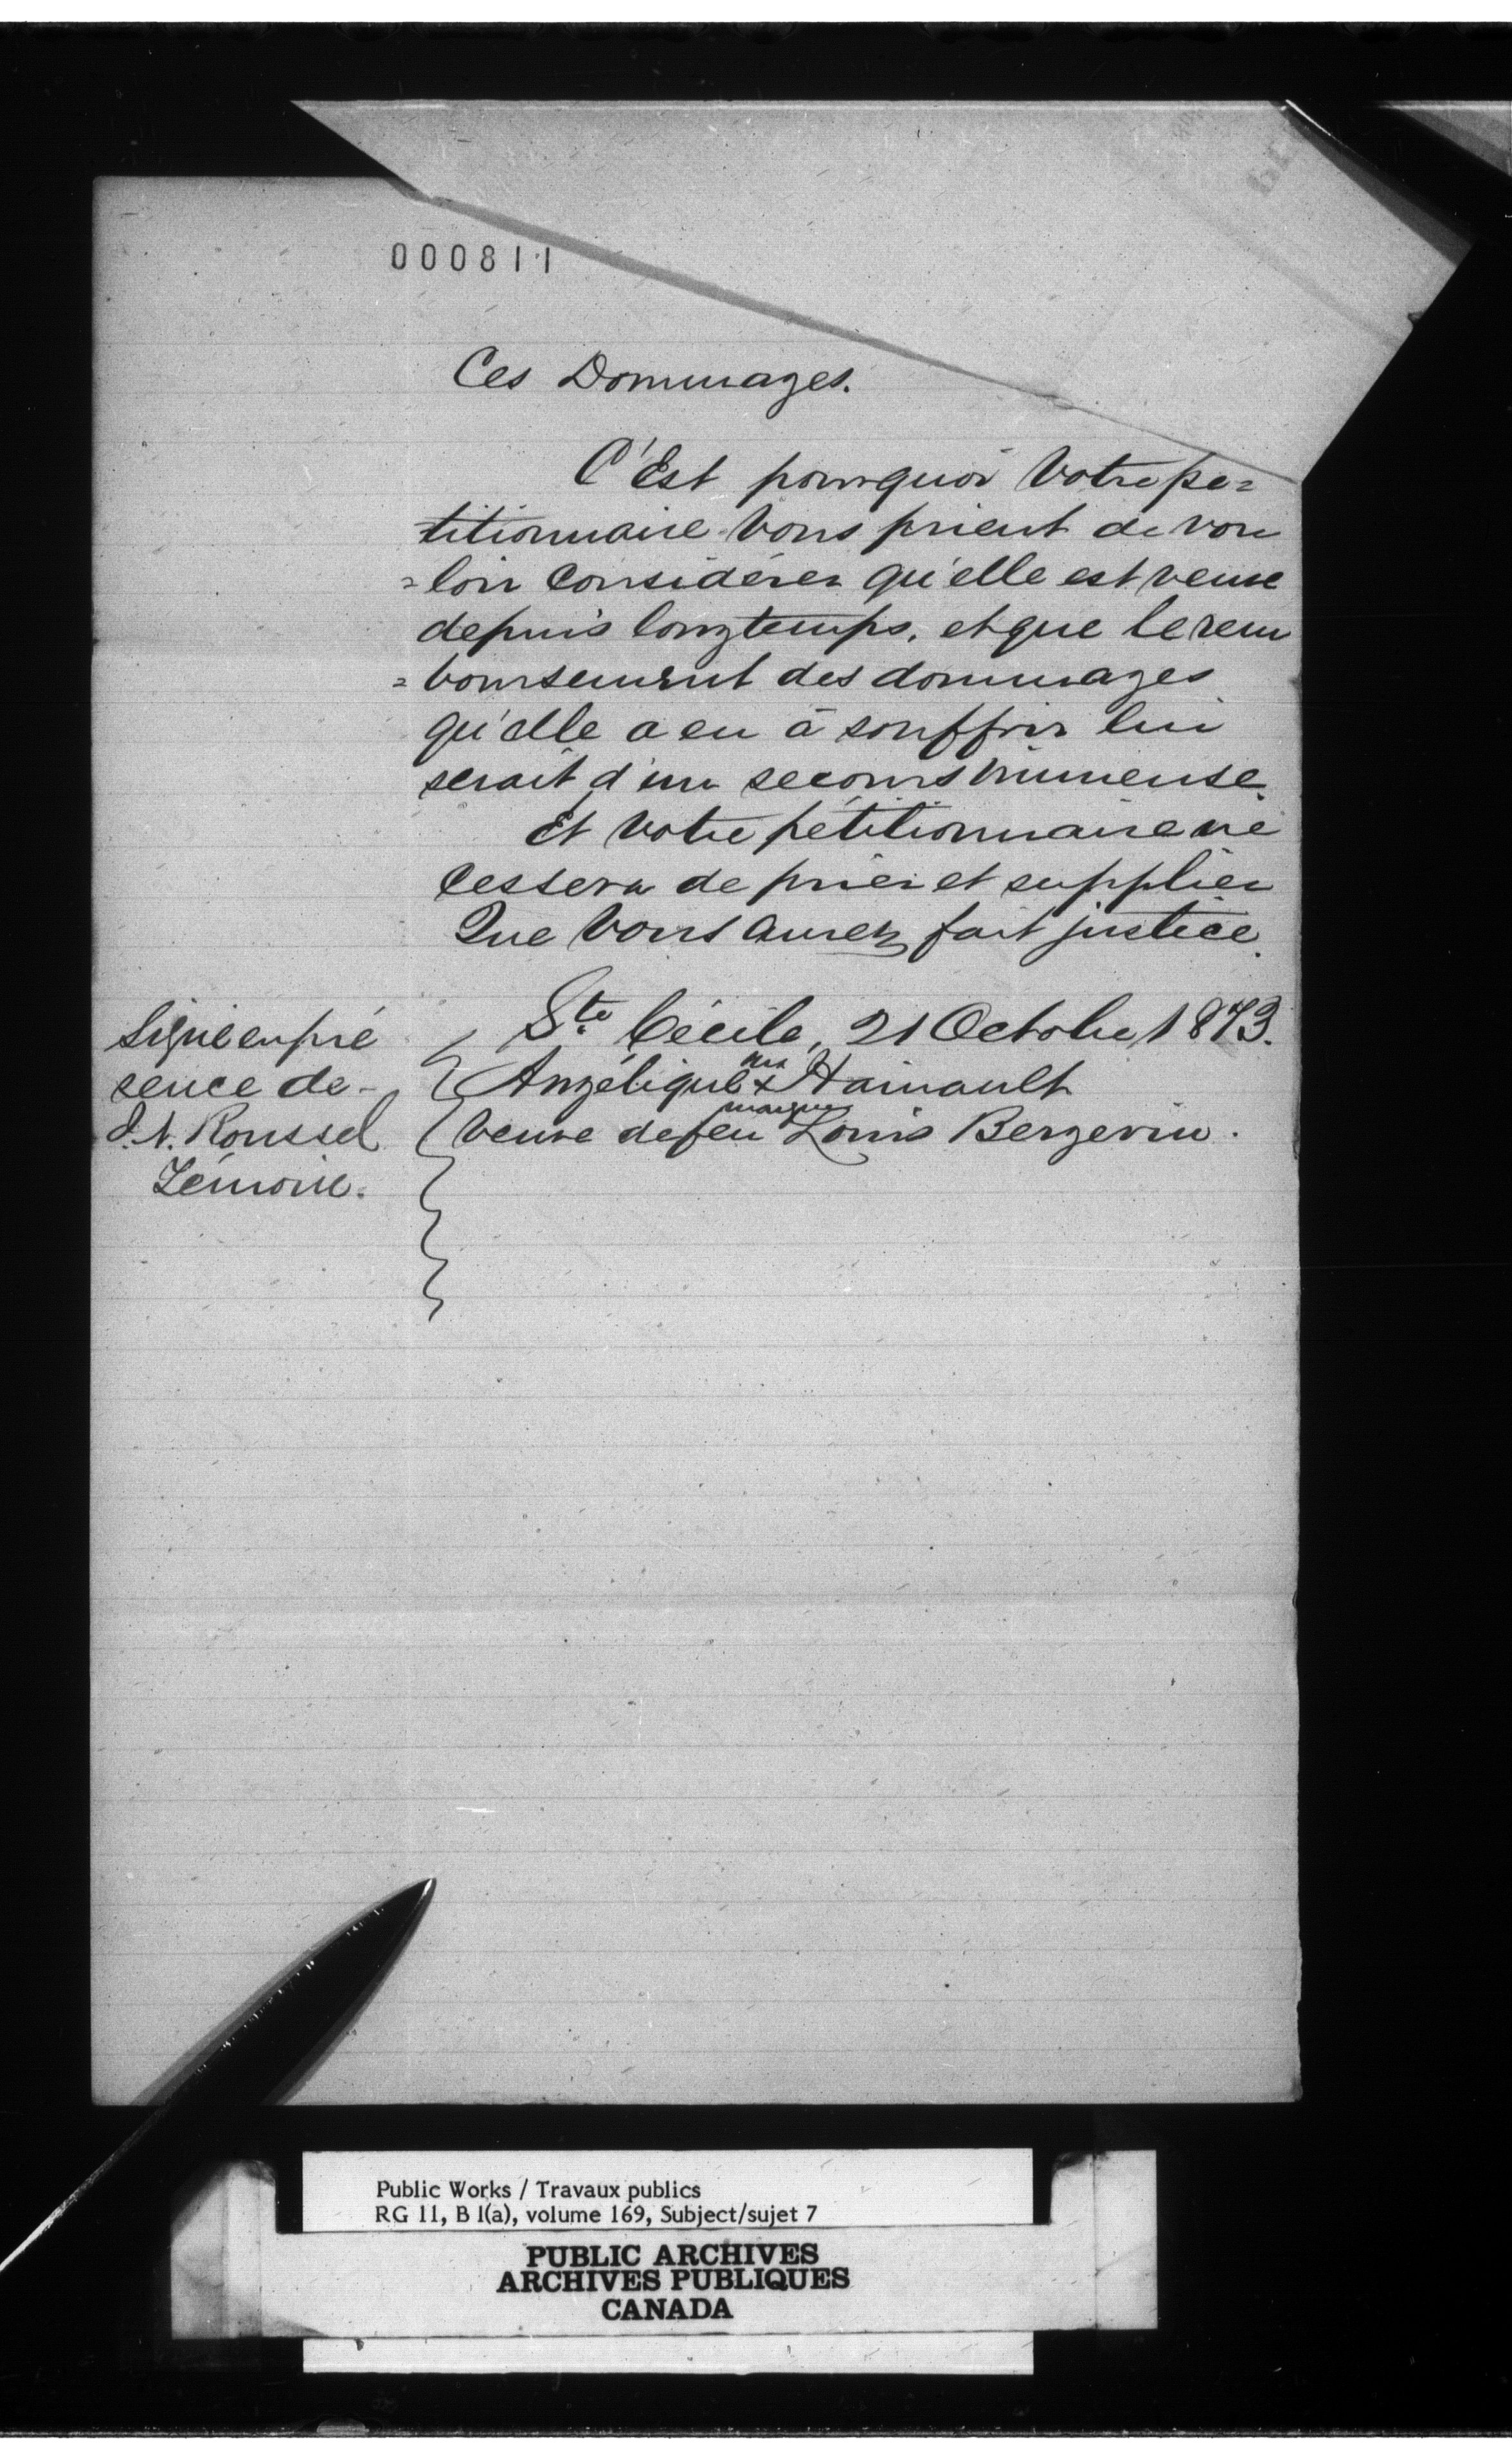 000811
Ces Dommages.
C'Est pourquoi Votre pe=
titionnaire Vous prient de vou
=loir Considérer qu'elle est veuve
depuis longtemps, et que le rem
=boursement des dommages
qu'elle a eu à souffrir lui
serait d'un secours immense.
Et Votre pétitionnaire ne
Cessera de prier et supplier
Que Vous aurez fait justice.
Signé en pré
sence de
Roussel
Témoin.
Ste Cécile, 21 Octobre 1873.
sa
Angélique x Hainault
marque
Veuve de feu Louis Bergevin.
Public Works / Travaux publics
RG 11, B 1(a), volume 169, Subject/sujet 7
PUBLIC ARCHIVES
ARCHIVES PUBLIQUES
CANADA